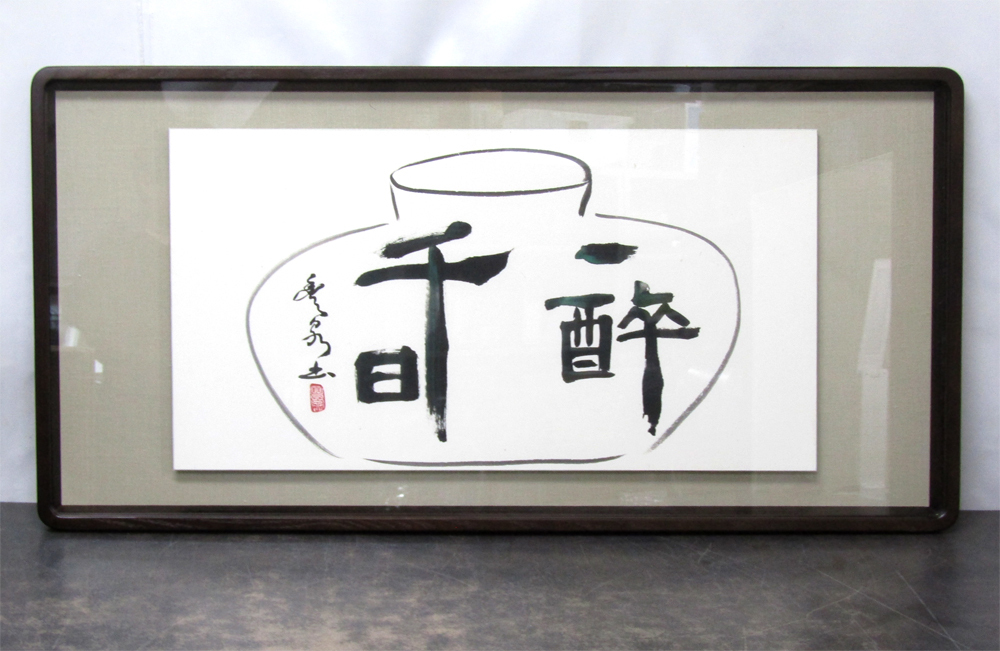 一醉
千日